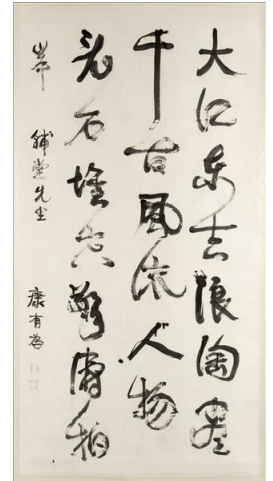 大江東去浪淘盡
千古風流人物
亂石堆空驚濤拍
岸 堂先生 康有為